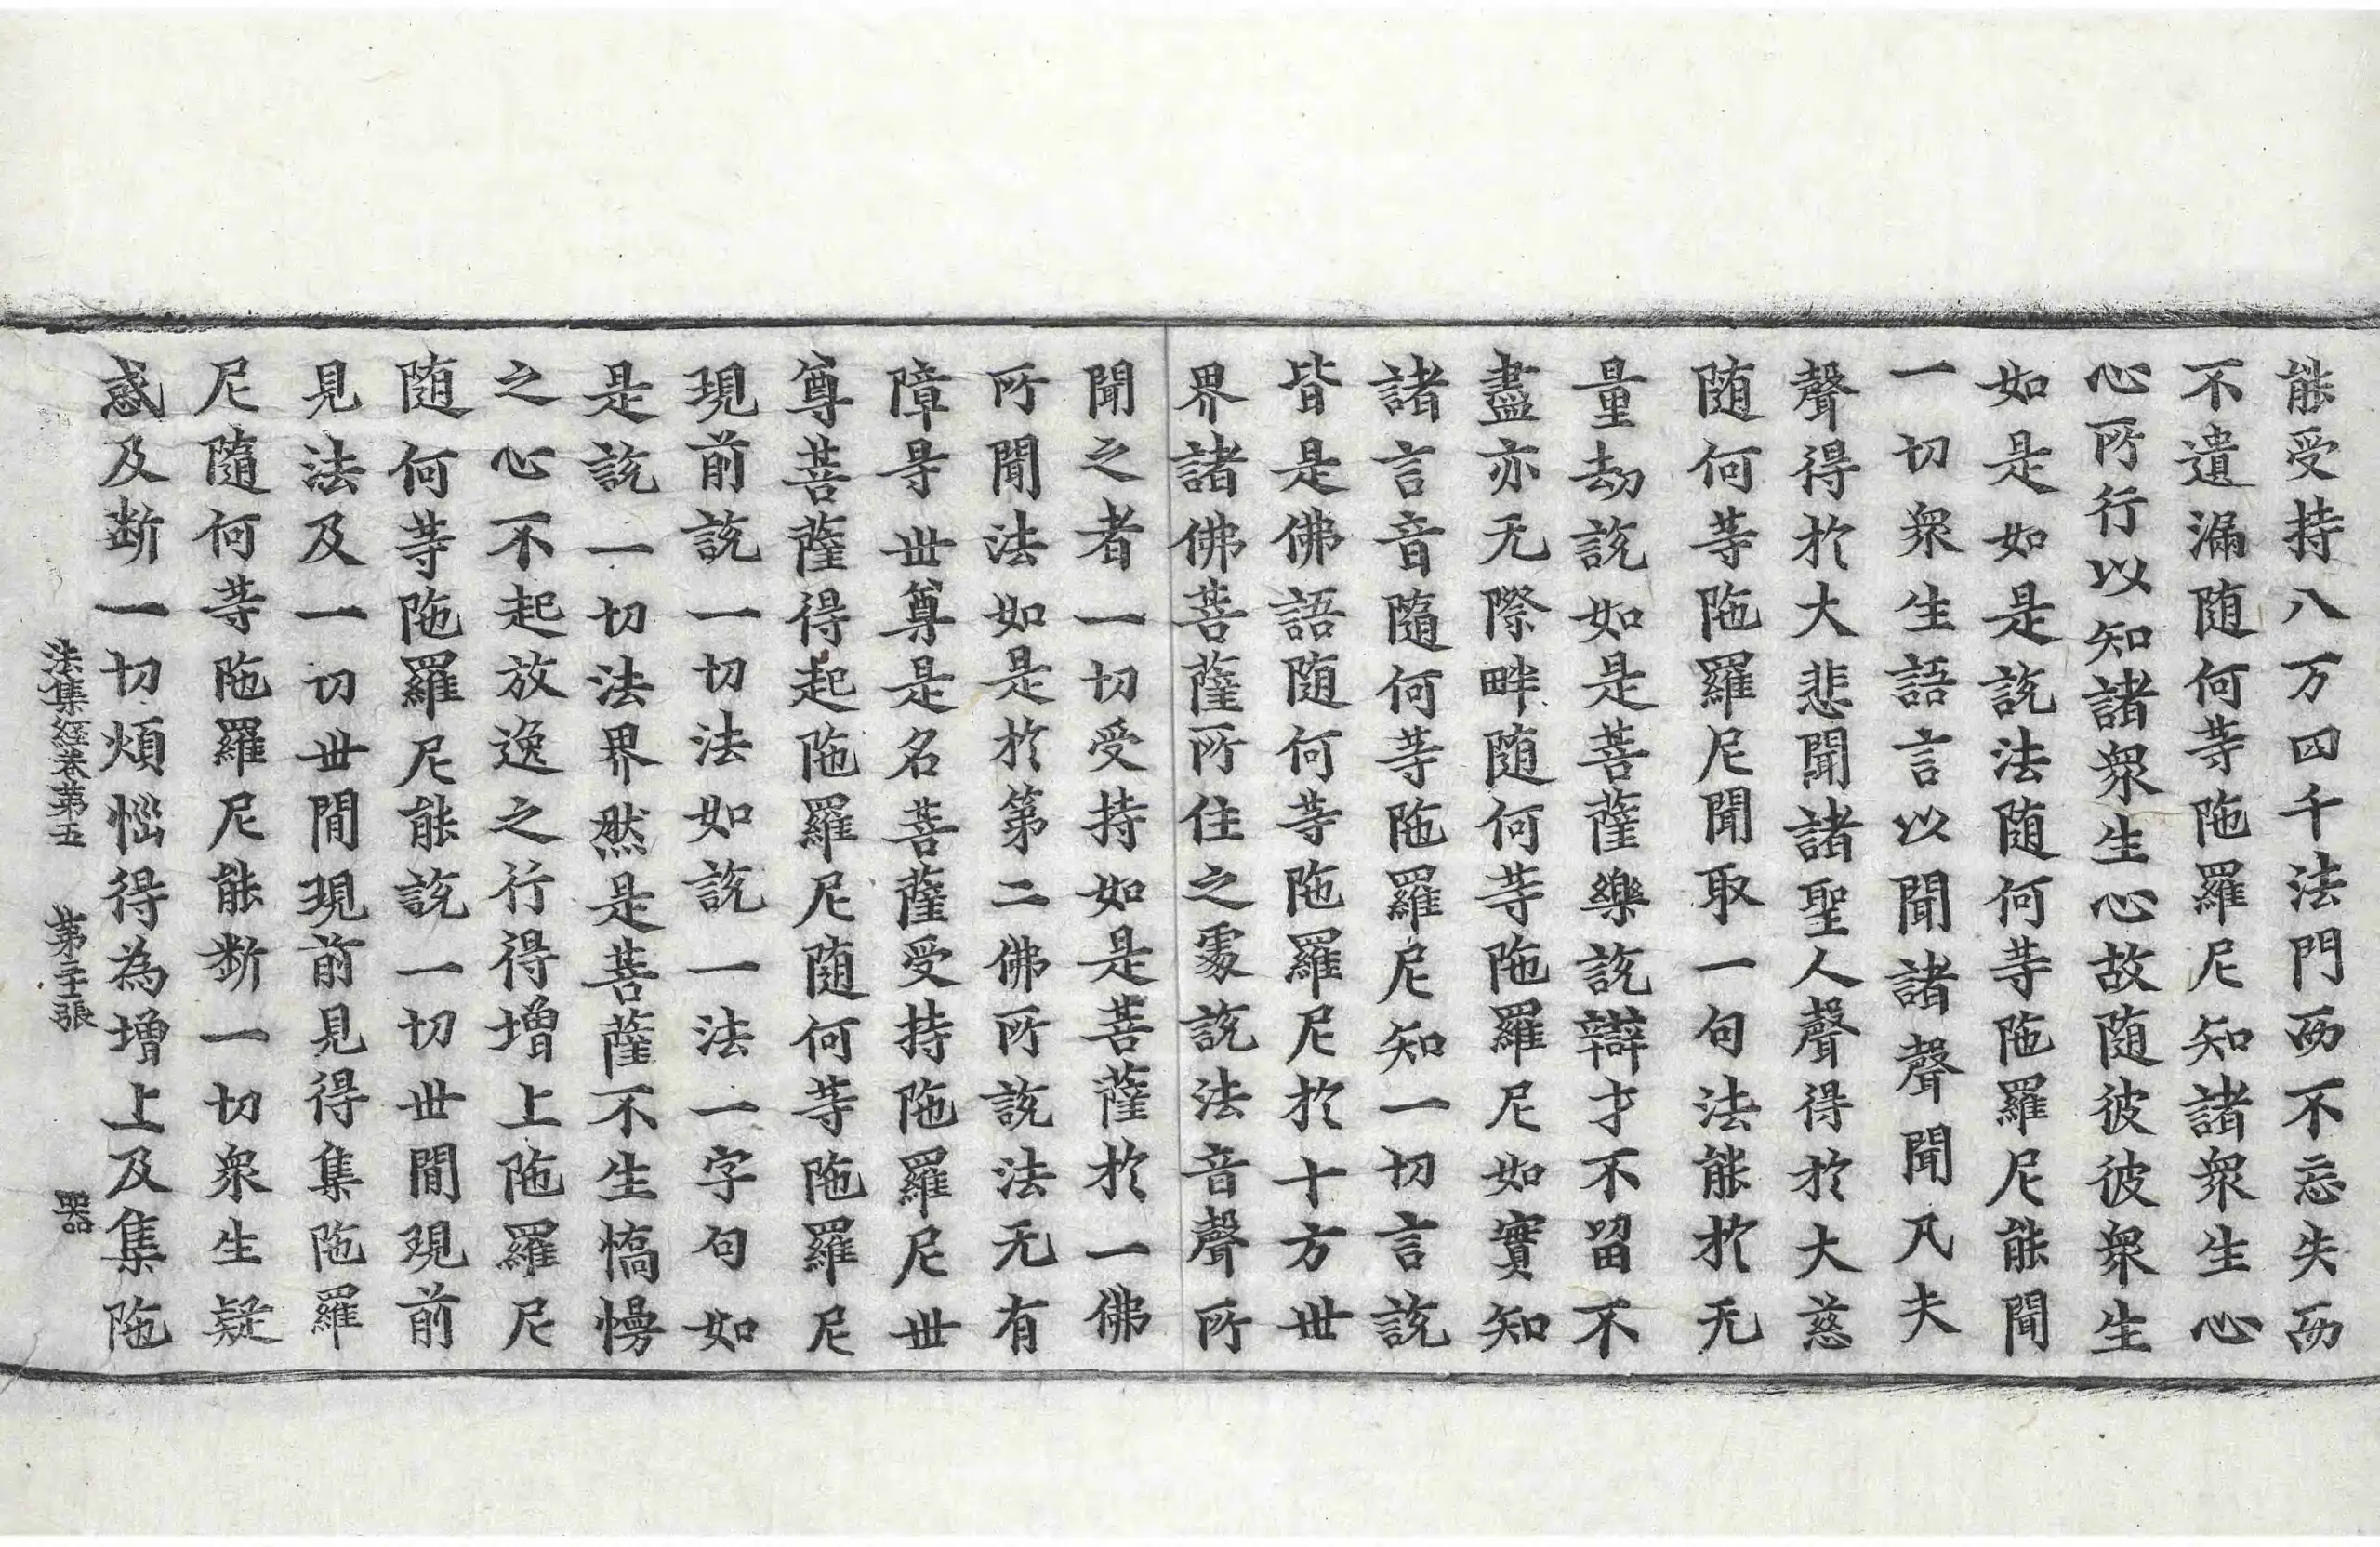 能受持八万四千法門而不忘失而
不遺漏随何等陁羅尼知諸衆生心
心所行以知諸衆生心故随彼彼衆生
如是如是說法随何等陁羅尼能聞
一切衆生語言以聞諸聲聞凡夫
聲得於大悲聞諸聖人聲得於大慈
随何等陁羅尼聞取一句法能於无
量劫說如是菩薩樂說辯才不留不
盡亦无際畔随何等陁羅尼如實知
諸言音隨何等陁羅尼知一切言說
皆是佛語随何等陁羅尼於十方世
界諸佛菩薩所住之處說法音聲所
聞之者一切受持如是菩薩於一佛
所聞法如是於第二佛所說法无有
障㝵世尊是名菩薩受持陁羅尼世
尊菩薩得起陁羅尼随何等陁羅尼
現前說一切法如說一法一字句如
是說一切法界然是菩薩不生憍慢
之心不起放逸之行得增上陁羅尼
随何等陁羅尼能說一切世間現前
見法及一切世間現前見得集陁羅
尼隨何等陁羅尼能斷一切衆生疑
惑及斷一切煩惱得為增上及集陁
法集經卷第五　第二十張　器